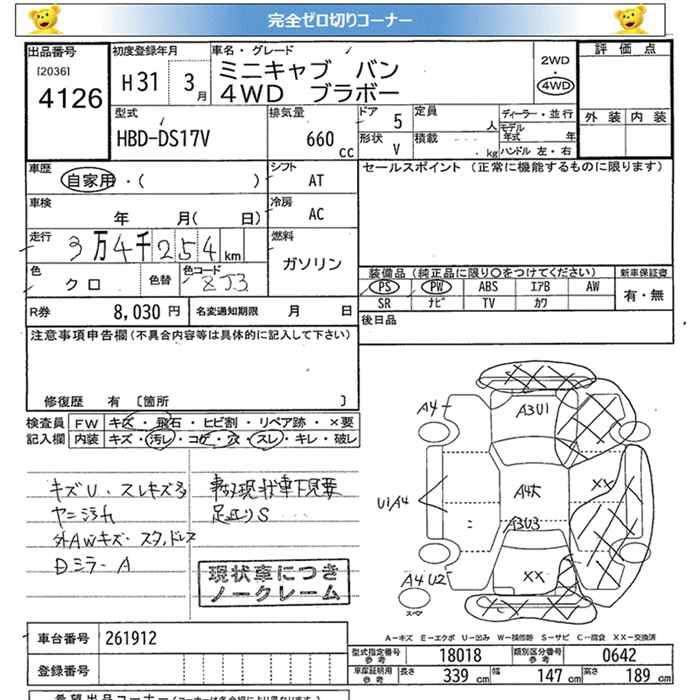 完全ゼロ切りコーナー
出品番号 初度登録年月 車名・グレード 評価点
[2036] H31 3月 ミニキャブ バン 2WD
4126 4WD ブラボー 4WD
外装 内装
型式 排気量 ドア 5 定員 人 ディーラー・並行
HBD-DS17V 660cc モデル年式 年
形状 V 積載 kg ハンドル 左・右
車歴 シフト セールスポイント (正常に機能するものに限ります)
自家用・( ) AT
車検 冷房
年 月( 日) AC
走行 3万4千254km 燃料
ガソリン
色 クロ 色替 色コード 装備品(純正品に限り〇をつけてください) 新車保証書
PS PW ABS エアB AW 有・無
SR ナビ TV カワ
R券 8,030円 名変通知期限 月 日 後日品
注意事項申告欄(不具合内容等は具体的に記入して下さい)
修復歴 有 [箇所 ]
検査員 FW キズ・飛石・ヒビ割・リペア跡・×要
記入欄 内装 キズ・汚レ・コゲ・穴・スレ・キレ・破レ
キズU・スレキズ多
ヤニ汚れ
外AWキズ・スタッドレス
Dミラー A
現状車下見要
足廻りS
現状車につき
ノークレーム
A4 A3U1
XX
U1A4
A4大
A3U3
XX
A4U2
スペア
A―キズ E―エクボ U―凹み W―補修跡 S―サビ C―腐食 XX―交換済
車台番号 261912
型式指定番号参考 18018 類別区分番号参考 0642
登録番号
車庫証明用参考 長さ 339cm 幅 147cm 高さ 189cm